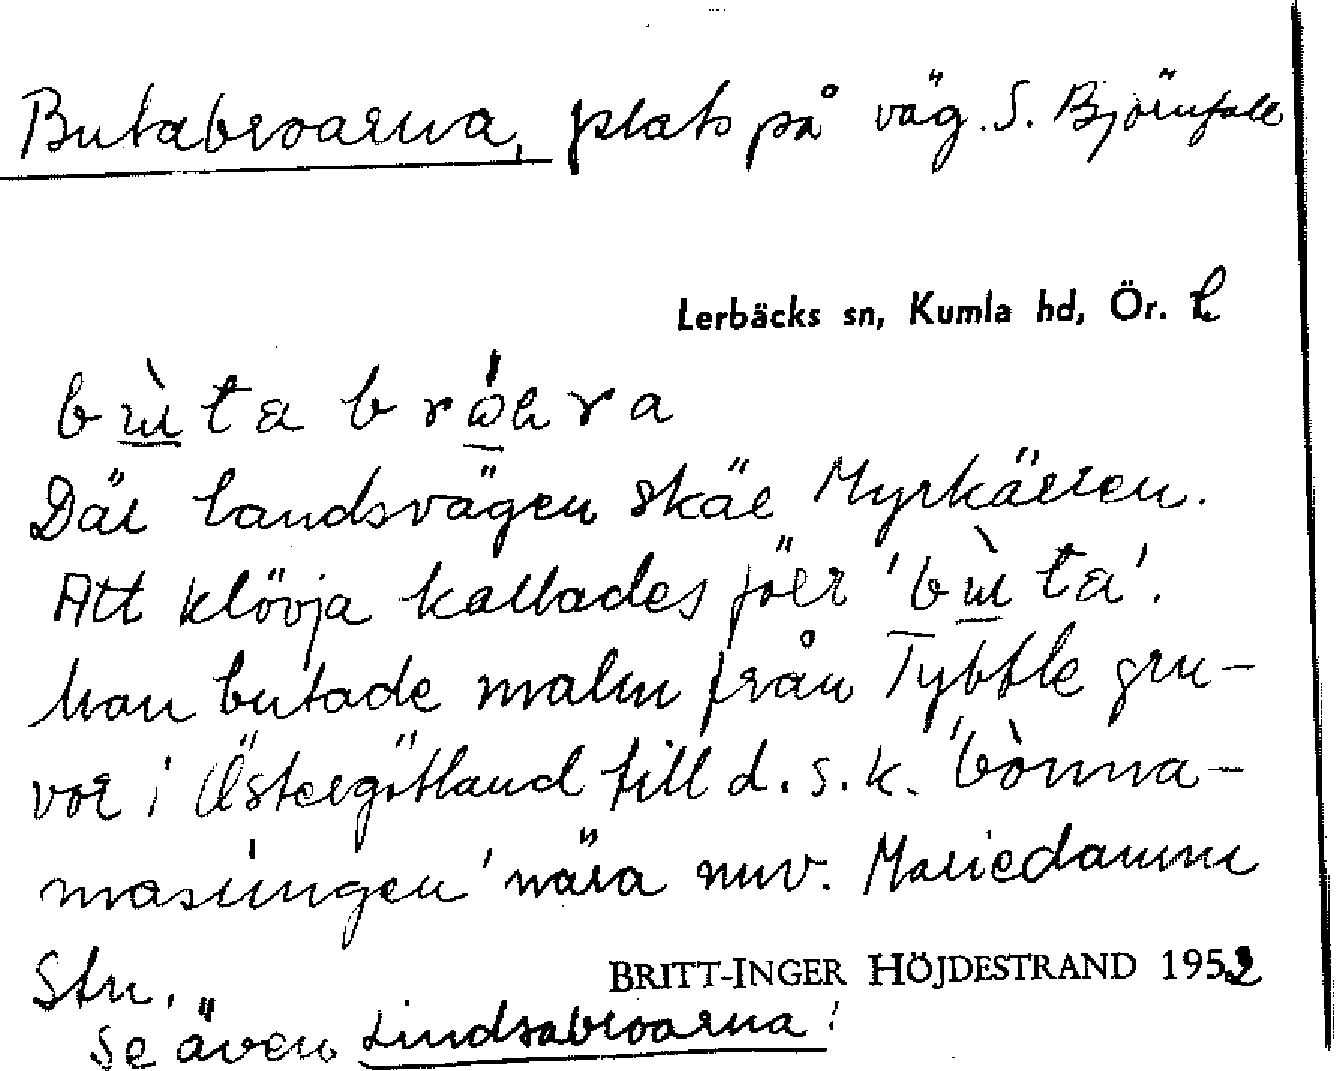 Butabroarna, plats på väg. S. Björnfall
Lerbäcks sn, Kumla hd, Ör. l
bùta
Där landsvägen skär Myrkärren.
Att klövja kallades förr 'bùta'.
Man butade malm från Tybble gru-
vor i Östergötland till d.s.k. 'bònna-
masungen' nära nuv. Mariedamm
Stn.
BRITT-INGER HÖJDESTRAND 1952
Se även Lindsabroarna!